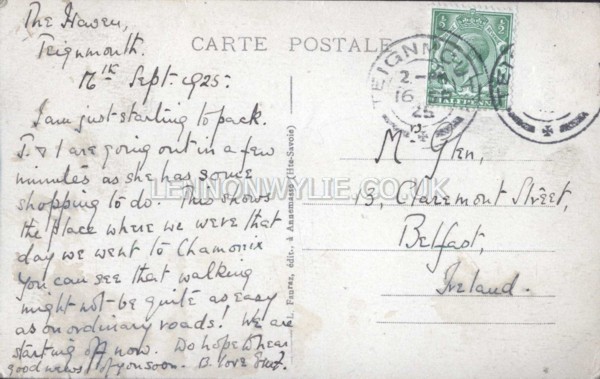 The Haven,
Teignmouth.
16th Sept. 1925.
I am just starting to pack.
J. & I are going out in a few
minutes as she has some
shopping to do. This shows
the place where we were that
day we went to Chamonix
you can see that walking
might not be quite as easy
as on ordinary roads! We are
starting off now. Do hope to hear
good news of you soon. B. love
CARTE POSTALE
TEIGNMOUTH
16
25
HALFPENNY
M Glen,
13, Claremont Street,
Belfast,
Ireland.
Fauraz, édit., à Annemasse (Hte-Savoie)
LENNONWYLIE.CO.UK